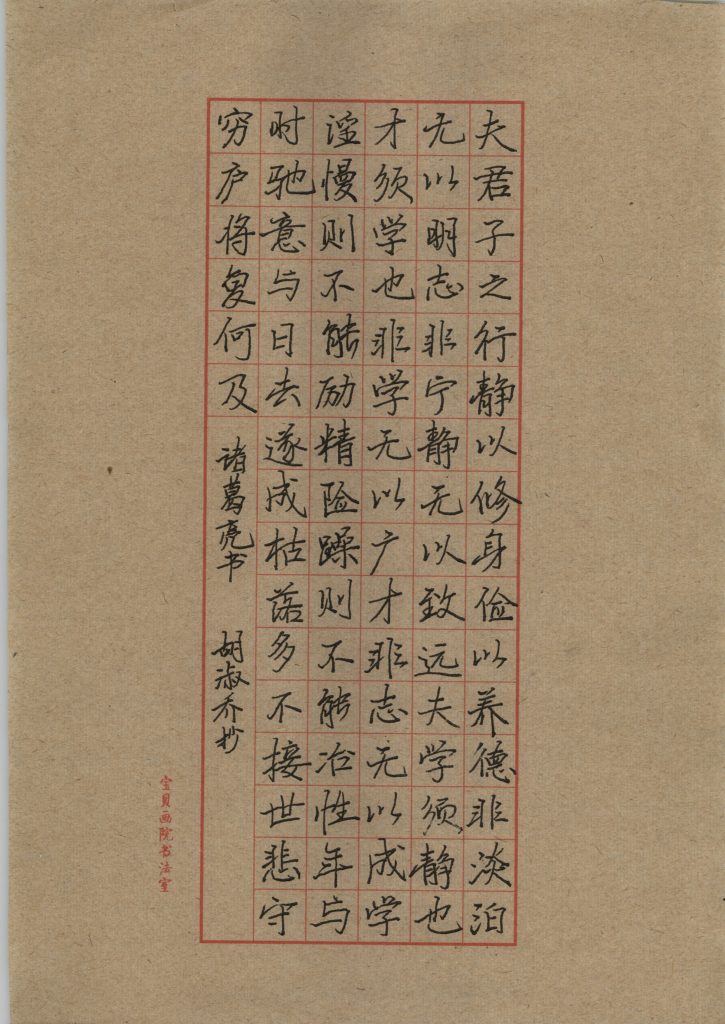 夫君子之行静以修身俭以养德非淡泊
无以明志非宁静无以致远夫学须静也
才须学也非学无以广才非志无以成学
淫慢则不能励精险躁则不能冶性年与
时驰意与日去遂成枯落多不接世悲守
穷庐将复何及
诸葛亮书
胡淑乔抄
宝贝画院书法室